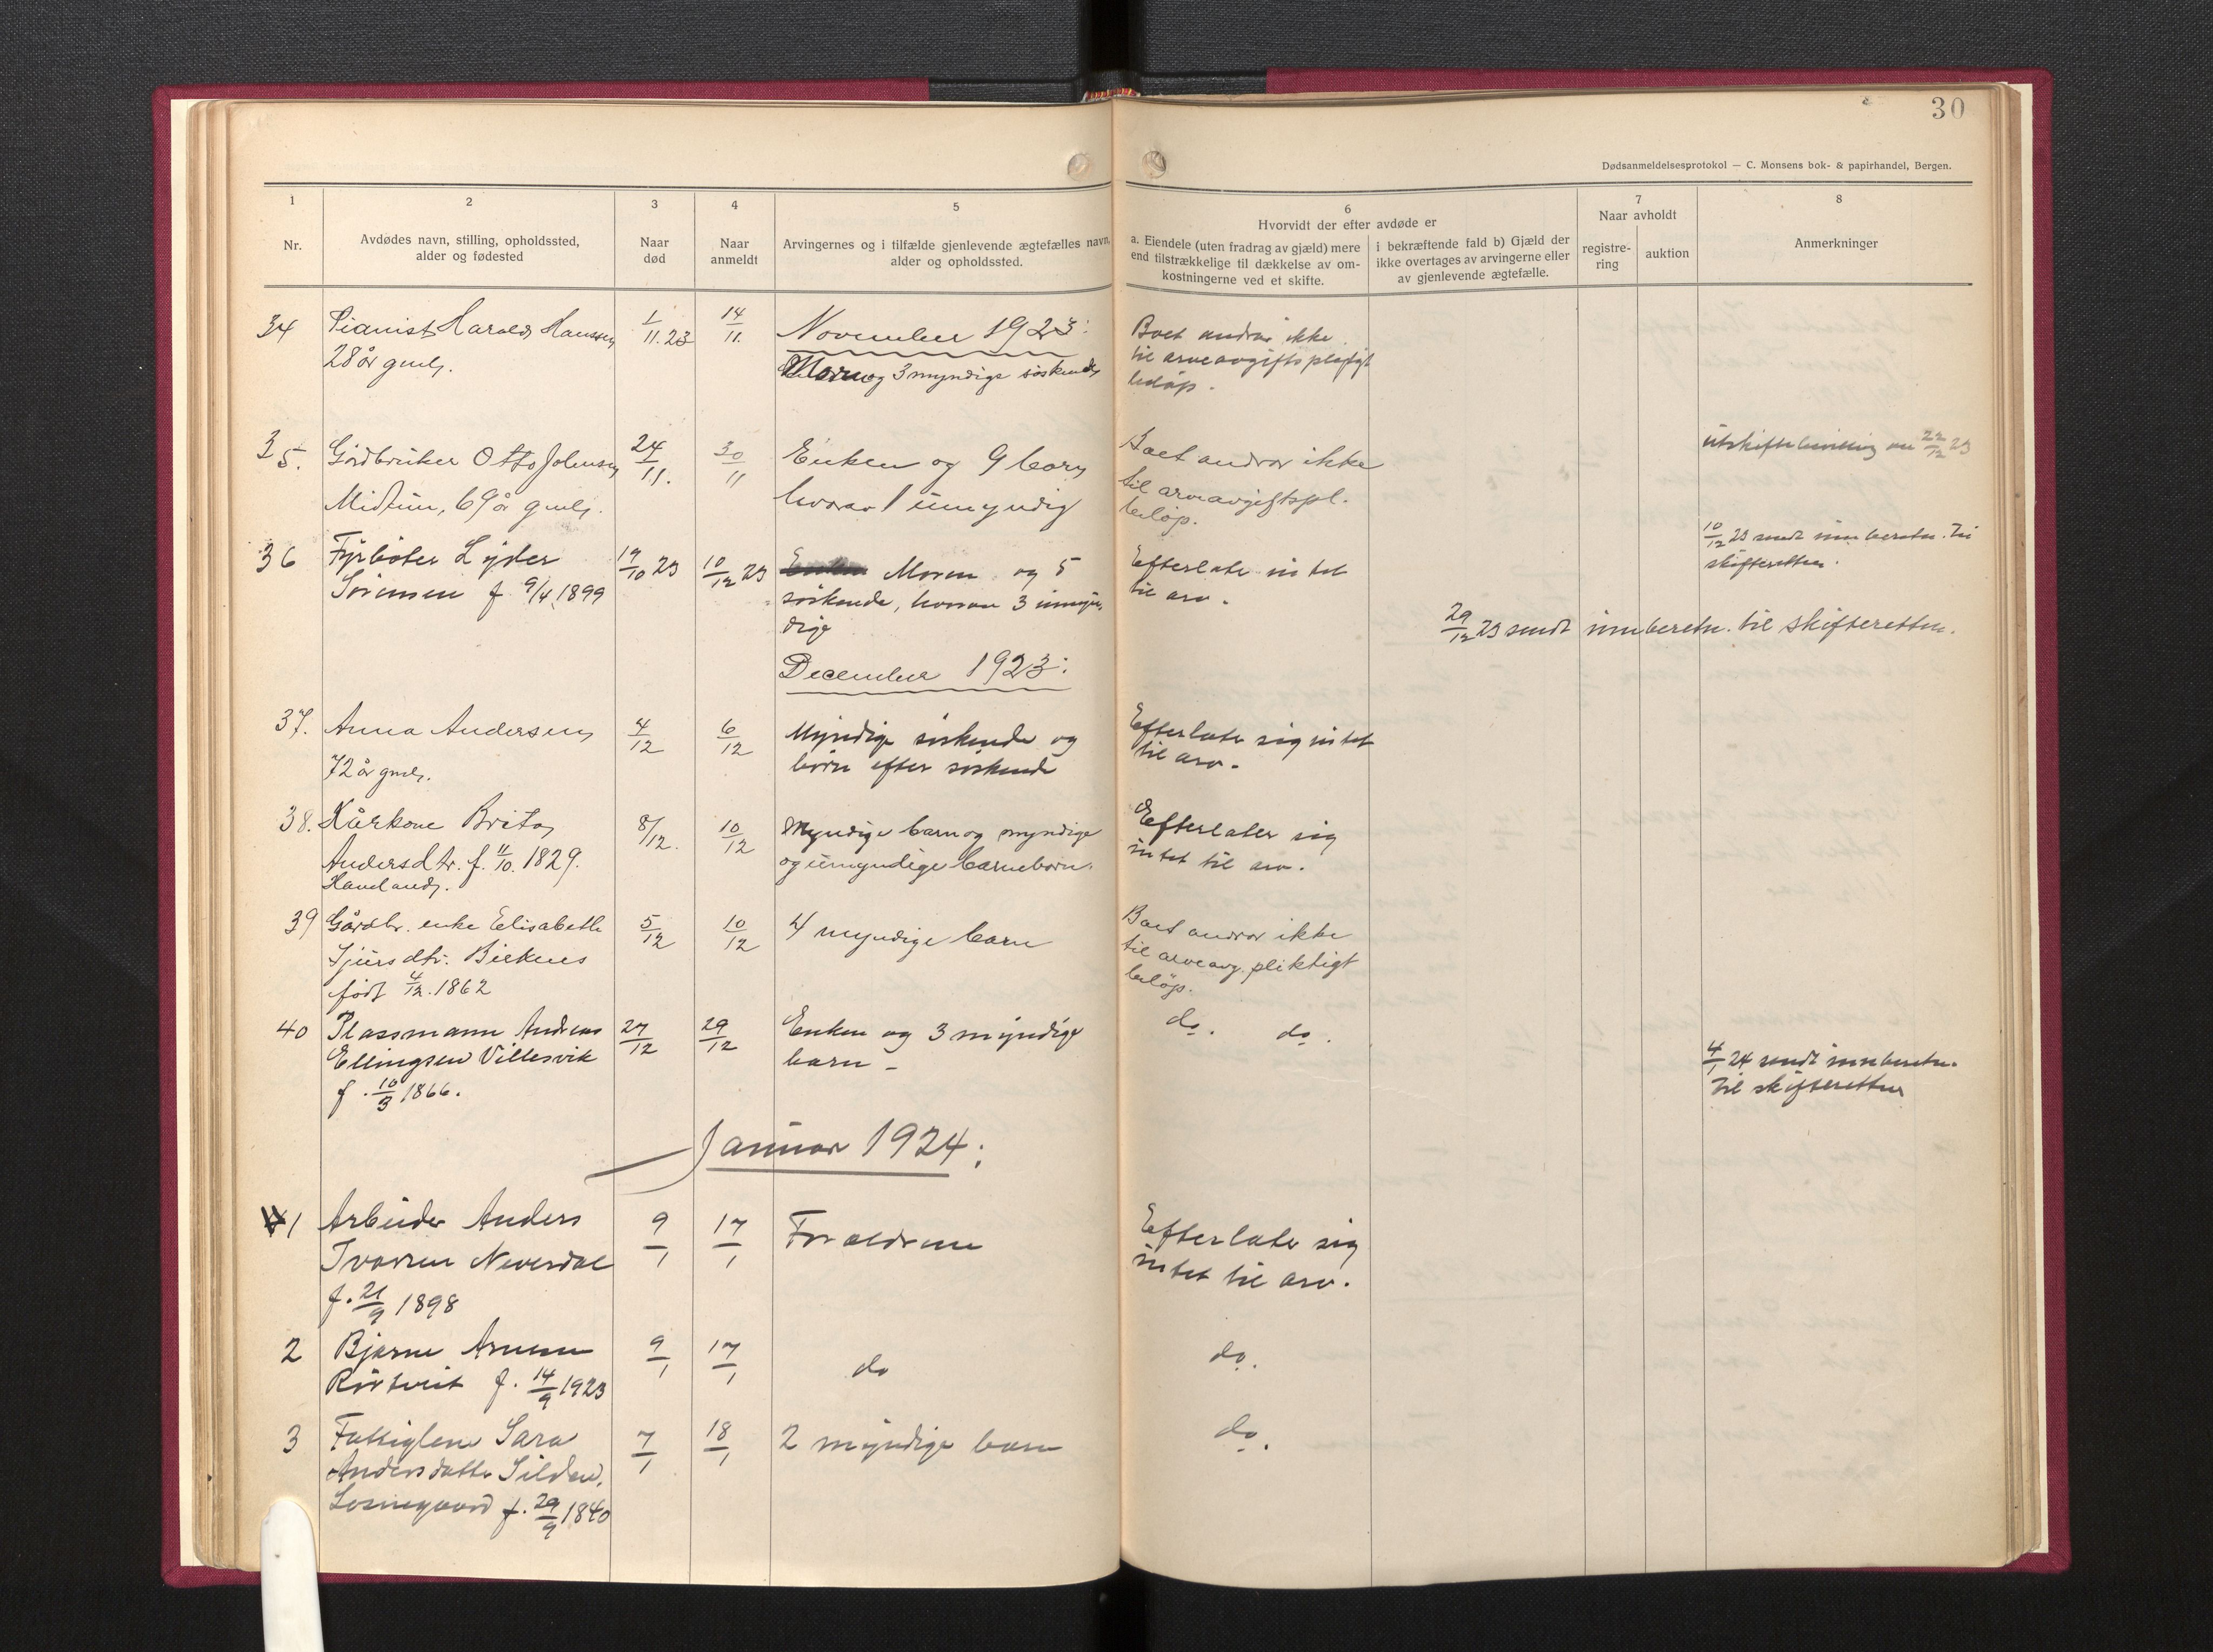 30
Dødsanmeldelsesprotokol — C. Monsens bok- & papirhandel, Bergen.
1
Nr.
2
Avdødes navn, stilling, opholdssted,
alder og fødested
3
Naar
død
4
Naar
anmeldt
5
Arvingernes og i tilfælde gjenlevende ægtefælles navn,
alder og opholdssted.
6
Hvorvidt der efter avdøde er
a. Eiendele (uten fradrag av gjæld) mere
end tilstrækkelige til dækkelse av om-
kostningerne ved et skifte.
i bekræftende fald b) Gjæld der
ikke overtages av arvingerne eller
av gjenlevende ægtefælle.
7
Naar avholdt
registre-
ring
auktion
8
Anmerkninger
November 1923:
34
Pianist Harald Hansen
28 år gml.
1/11.23
14/11.
Moren og 3 myndige søskende
Boet andrar ikke
til arveavgiftspligtigt
beløp.
35.
Gårdbruker Otto Johnsen
Midtun, 69 år gml.
24/11.
30/11
Enken og 9 barn
hvorav 1 umyndig
Boet andrar ikke
til arveavgiftspl.
beløp.
22/12 23
36
Fyrbøter Lyder
Sørensen f 9/4 1899
19/10 23
10/12 23
Moren og 5
søskende, hvorav 3 umyn-
dige
Efterlate intet
til arv.
10/12 23 sendt innberetn. til
skifteretten.
29/12 23 sendt innberetn. til skifteretten.
December 1923:
37.
Anna Andersen
72 år gml.
4/12
6/12
Myndige søskende og
børn efter søskende
Efterlater sig intet
til arv.
38.
Kårkone Brita
Andersdtr. f. 11/10. 1829.
Haveland.
8/12.
10/12
Myndige barn og myndige
og umyndige barnebørn.
Efterlater sig
intet til arv.
39
Gårdbr. enke Elisabeth
Sjursdtr. Birknes
født 4/12. 1862
5/12
10/12
4 myndige barn
Boet andrar ikke
til arveavg. pliktigt
beløp.
40
Plassmann Andreas
Ellingsen Villesvik
f. 10/3 1866.
27/12
29/12
Enken og 3 myndige
barn -
do. do.
4/1 24 sendt innberetn.
til skifteretten
Januar 1924:
1
Arbeider Anders
Ivarsen Neverdal
f. 21/9 1898
9/1
17/1
Forældrene
Efterlater sig
intet til arv.
2
Bjarne Arnesen
Rørtveit f. 14/9 1923
9/1
17/1
do
do.
3
Fattiglem Sara
Andersdatter Silden,
Losnegaard f. 29/9 1840
7/1
18/1
2 myndige barn
do.